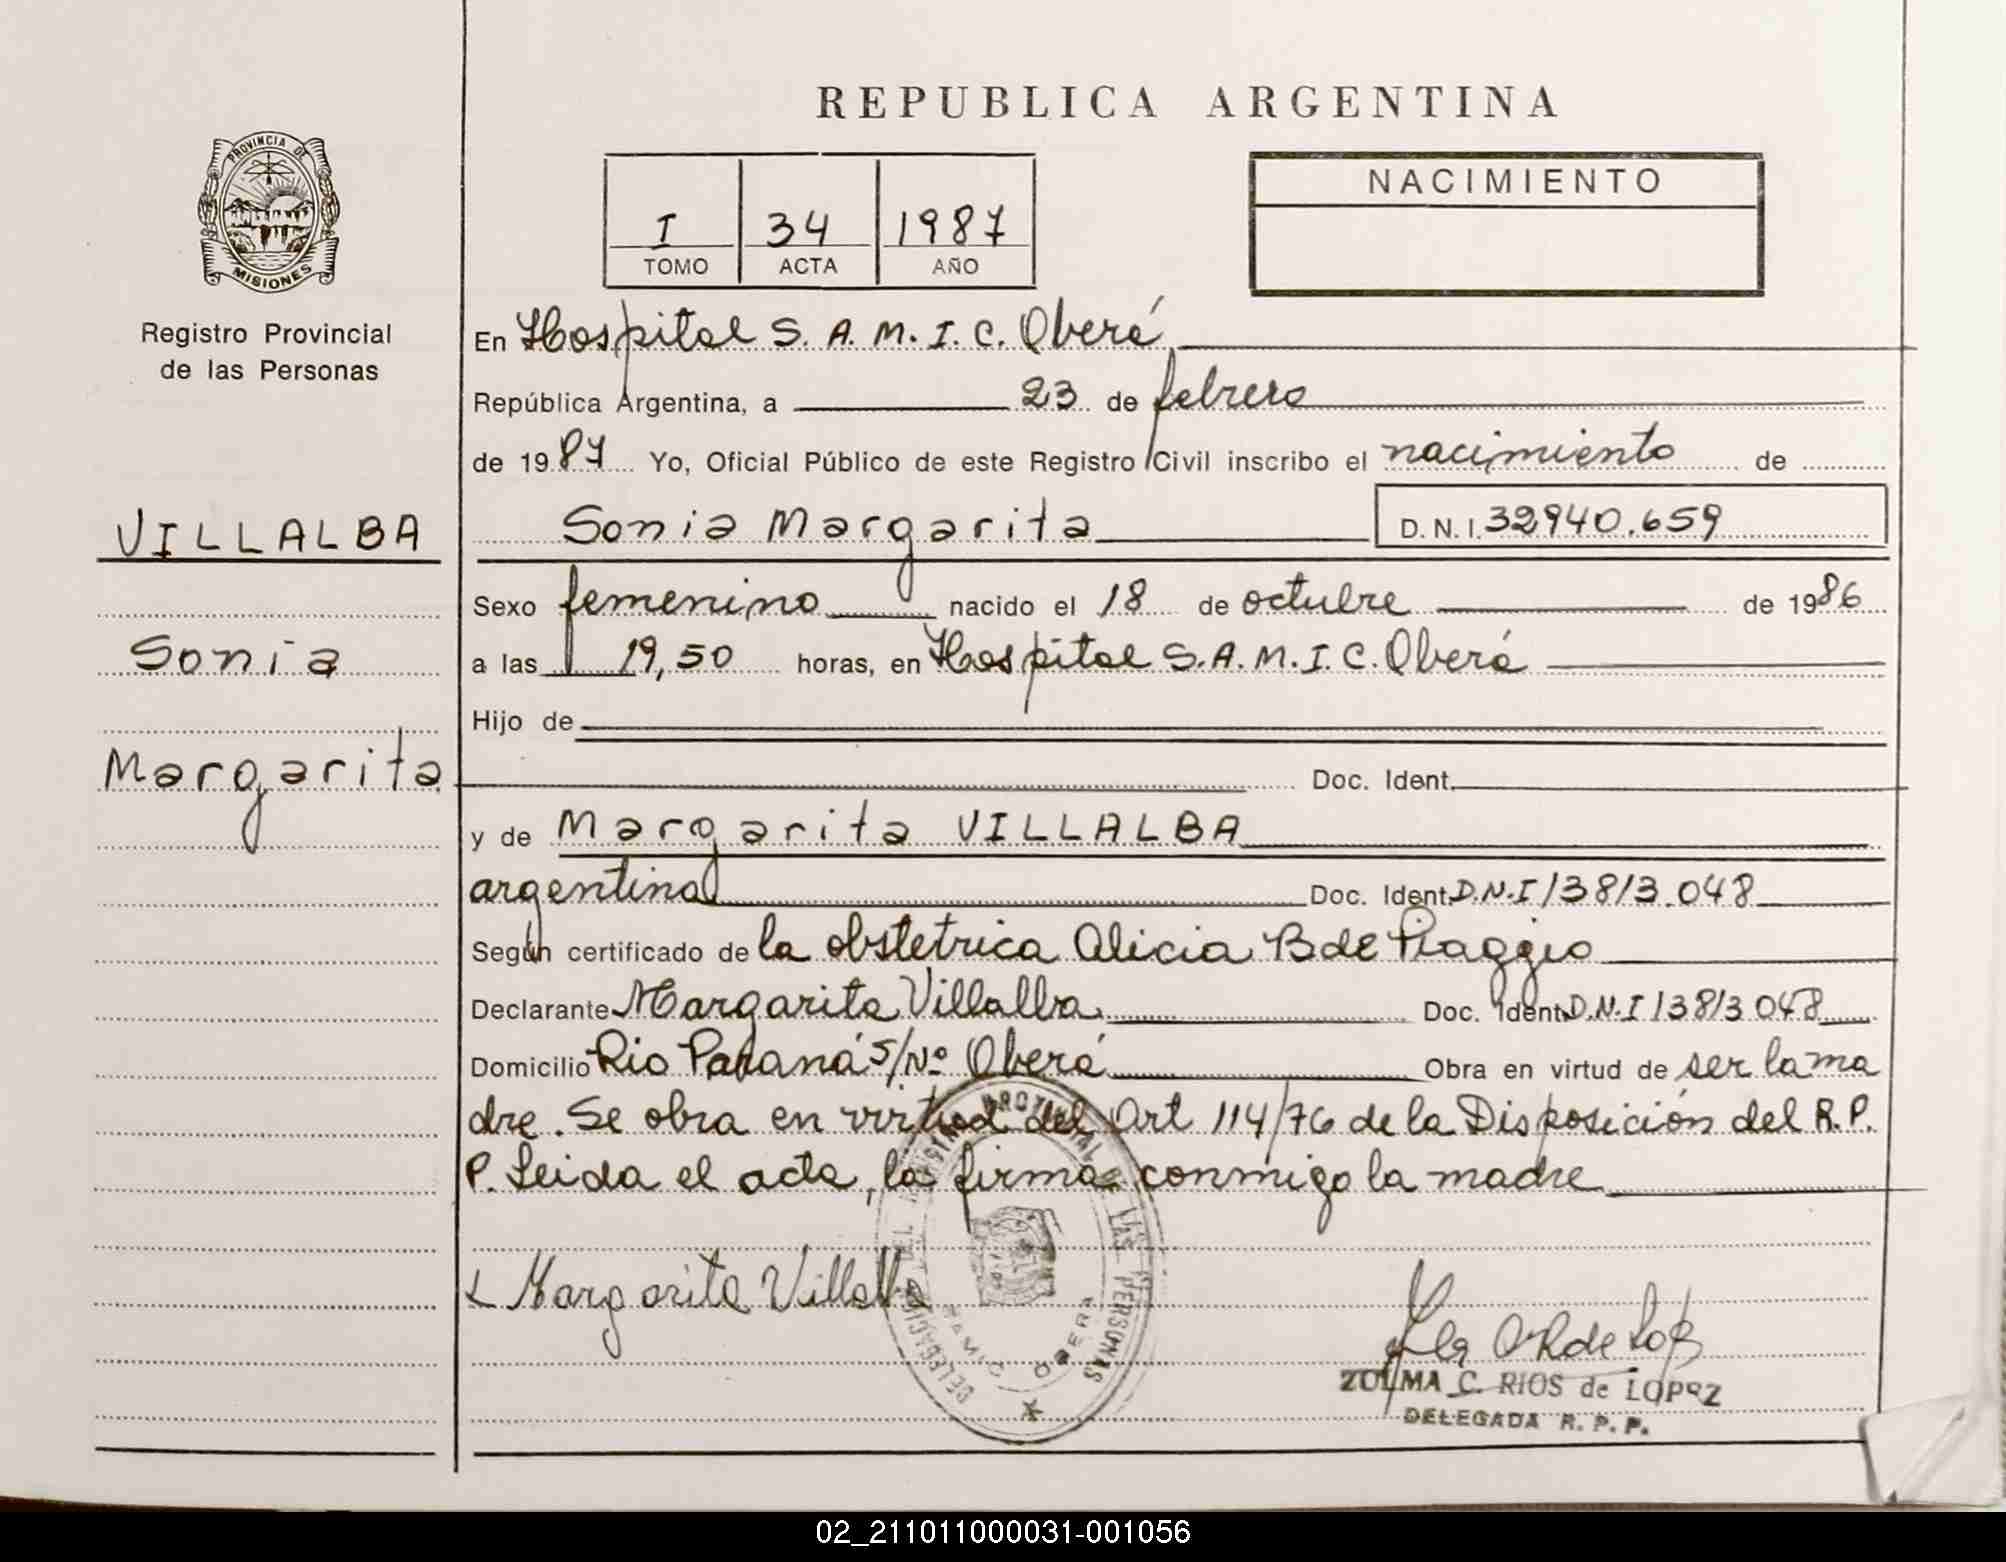 REPUBLICA ARGENTINA
PROVINCIA DE
MISIONES
Registro Provincial
de las Personas
I 34 1987
TOMO ACTA AÑO
NACIMIENTO
En Hospital S. A. M. I. C. Oberá
República Argentina, a 23 de febrero
de 1987 Yo, Oficial Público de este Registro Civil inscribo el nacimiento de
VILLALBA
Sonia Margarita D. N. I. 32940.659
Sexo femenino nacido el 18 de octubre de 1986
Sonia
a las 19,50 horas, en Hospital S.A.M.I.C. Oberá
Hijo de
Margarita
Doc. Ident.
y de Margarita VILLALBA
argentina Doc. Ident. D.N.I 13813.048
Según certificado de la obstetrica Alicia B de Piaggio
Declarante Margarita Villalba Doc. Ident. D.N.I 13813048
Domicilio Rio Paraná S/Nº Oberá Obra en virtud de ser la ma
dre. Se obra en virtud del Art 114/76 de la Disposición del R.P.
P. Leida el acta, la firma conmigo la madre
Margarita Villalba
DELEGACION DEL REGISTRO PROVINCIAL DE LAS PERSONAS
OBERA
ZULMA C. RIOS de LOPEZ
DELEGADA R. P. P.
02_211011000031-001056